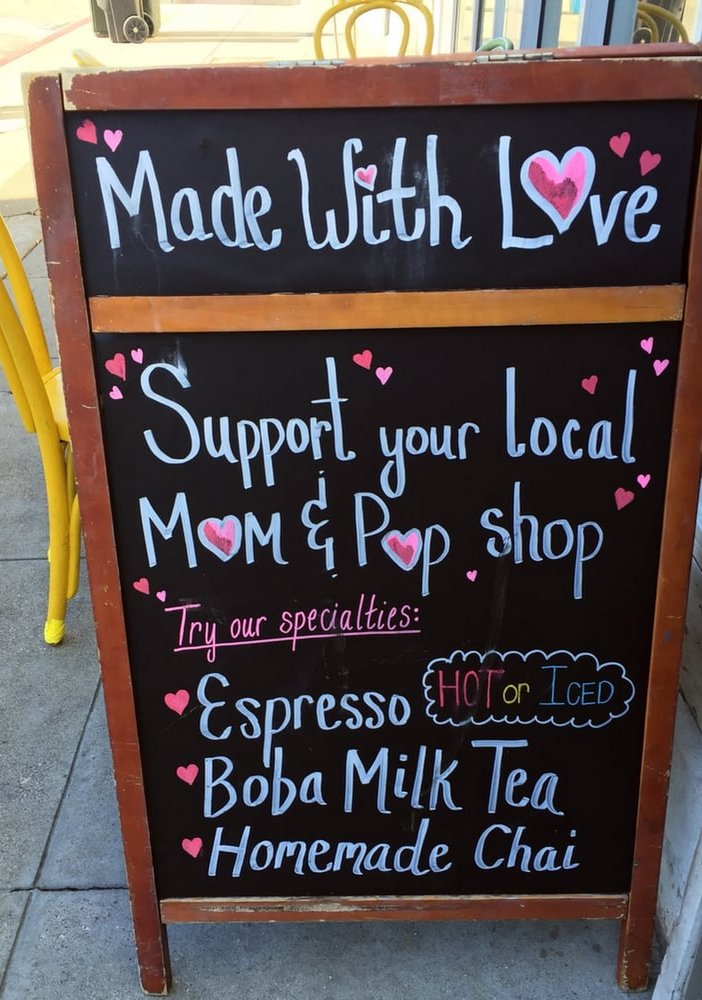 Made With Love
Support your local
Mom & Pop shop
Try our specialties:
Espresso HOT or ICED
Boba Milk Tea
Homemade Chai